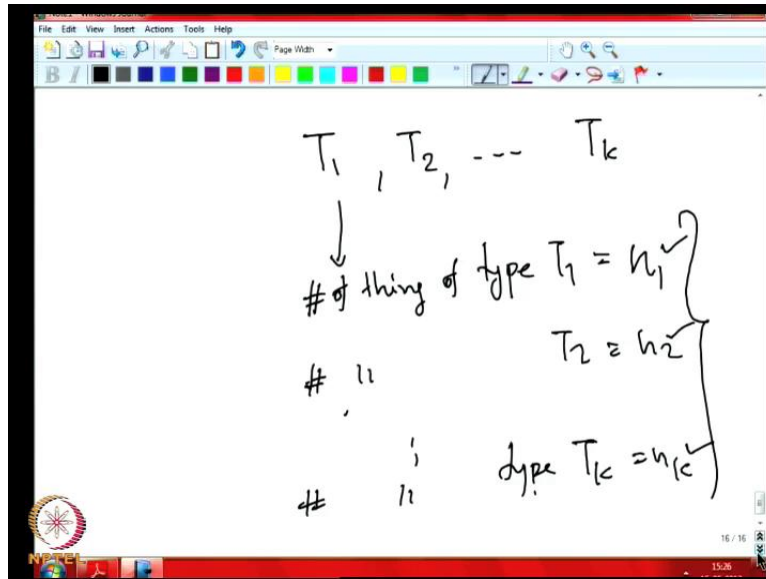 File Edit View Insert Actions Tools Help
Page Width
B I
T1, T2, --- Tk
# of thing of type T1 = n1 ✓
T2 = n2 ✓
# "
# " type Tk = nk ✓
16 / 16
NPTEL
15:26